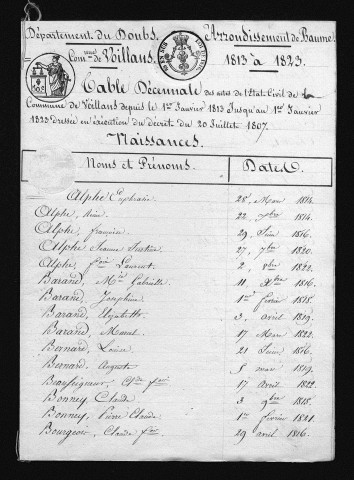 Département du Doubs. Arrondissement de Baume.
Com.ne de Voillans. 1813 à 1823.
Table Décennale des actes de l'Etat-Civil de la
Commune de Voillans depuis le 1er Janvier 1813 Jusqu'au 1er Janvier
1823 Dressée en éxécution du décret du 20 Juillet 1807.
Naissances.
Noms et Prénoms. Dates.
Alphe Euphrasie 28 Mars 1814.
Alphe, 22 1814.
Alphe, françoise 29 Juin 1816.
Alphe Jeanne 27, 7bre 1820.
Alphe, Laurent. 2, 8bre 1822.
Barand, M. Gabrielle 11 Xbre 1816.
Barand, Joséphine 1er février 1818.
Barand, 3, avril 1819.
Barand, Marcel. 17 Mars 1822.
Bernard, Louise 21 Juin 1816.
Bernard, Auguste 5 mars 1819.
17 Avril 1822.
Bonney, Claude 3 9bre 1818.
Bonney, Pierre Claude 1er février 1821.
Bourgeois, Claude f.ois 29 avril 1816.